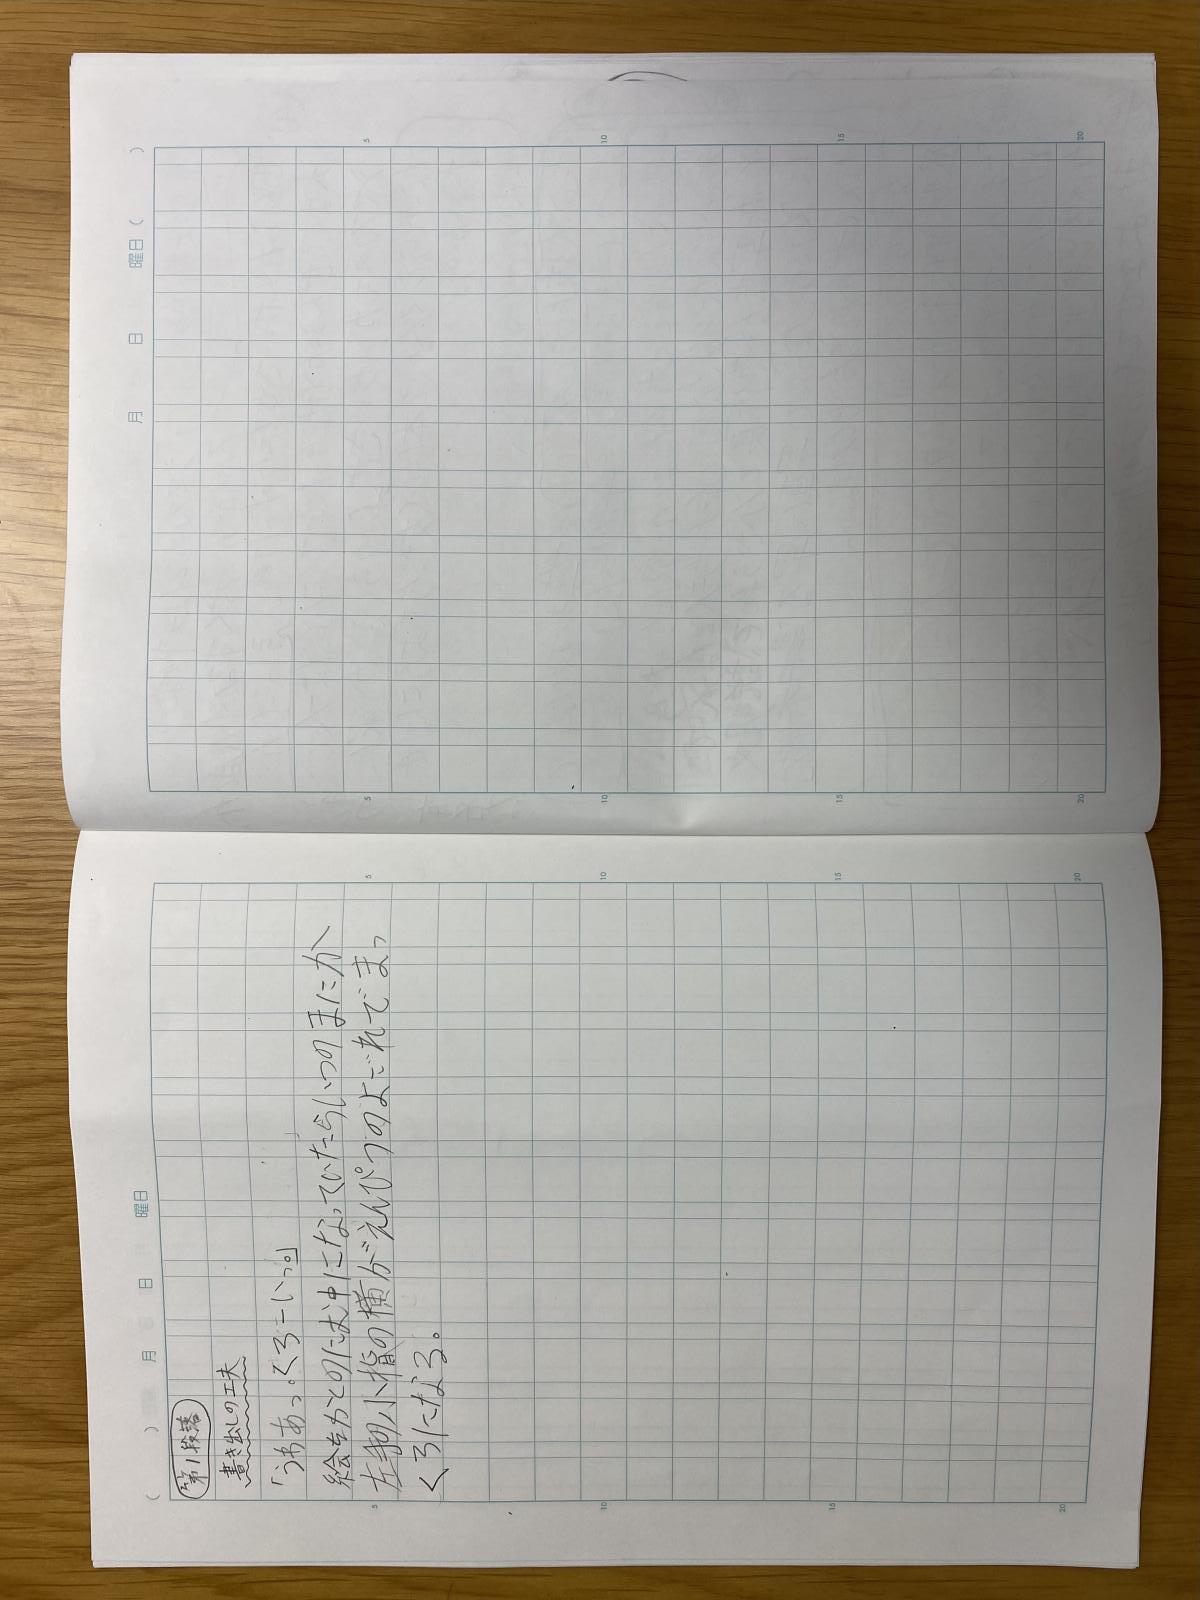 ( ) 月 日 曜日
第1段落
書き出しの工夫
「うわあっ。くろーいっ。」
絵をかくのにむ中になっていたらいつのまにか
左手の小指の横がえんぴつのよごれでまっ
くろになる。
5
10
15
20
5
10
15
20
月 日 曜日 ( )
5
10
15
20
5
10
15
20